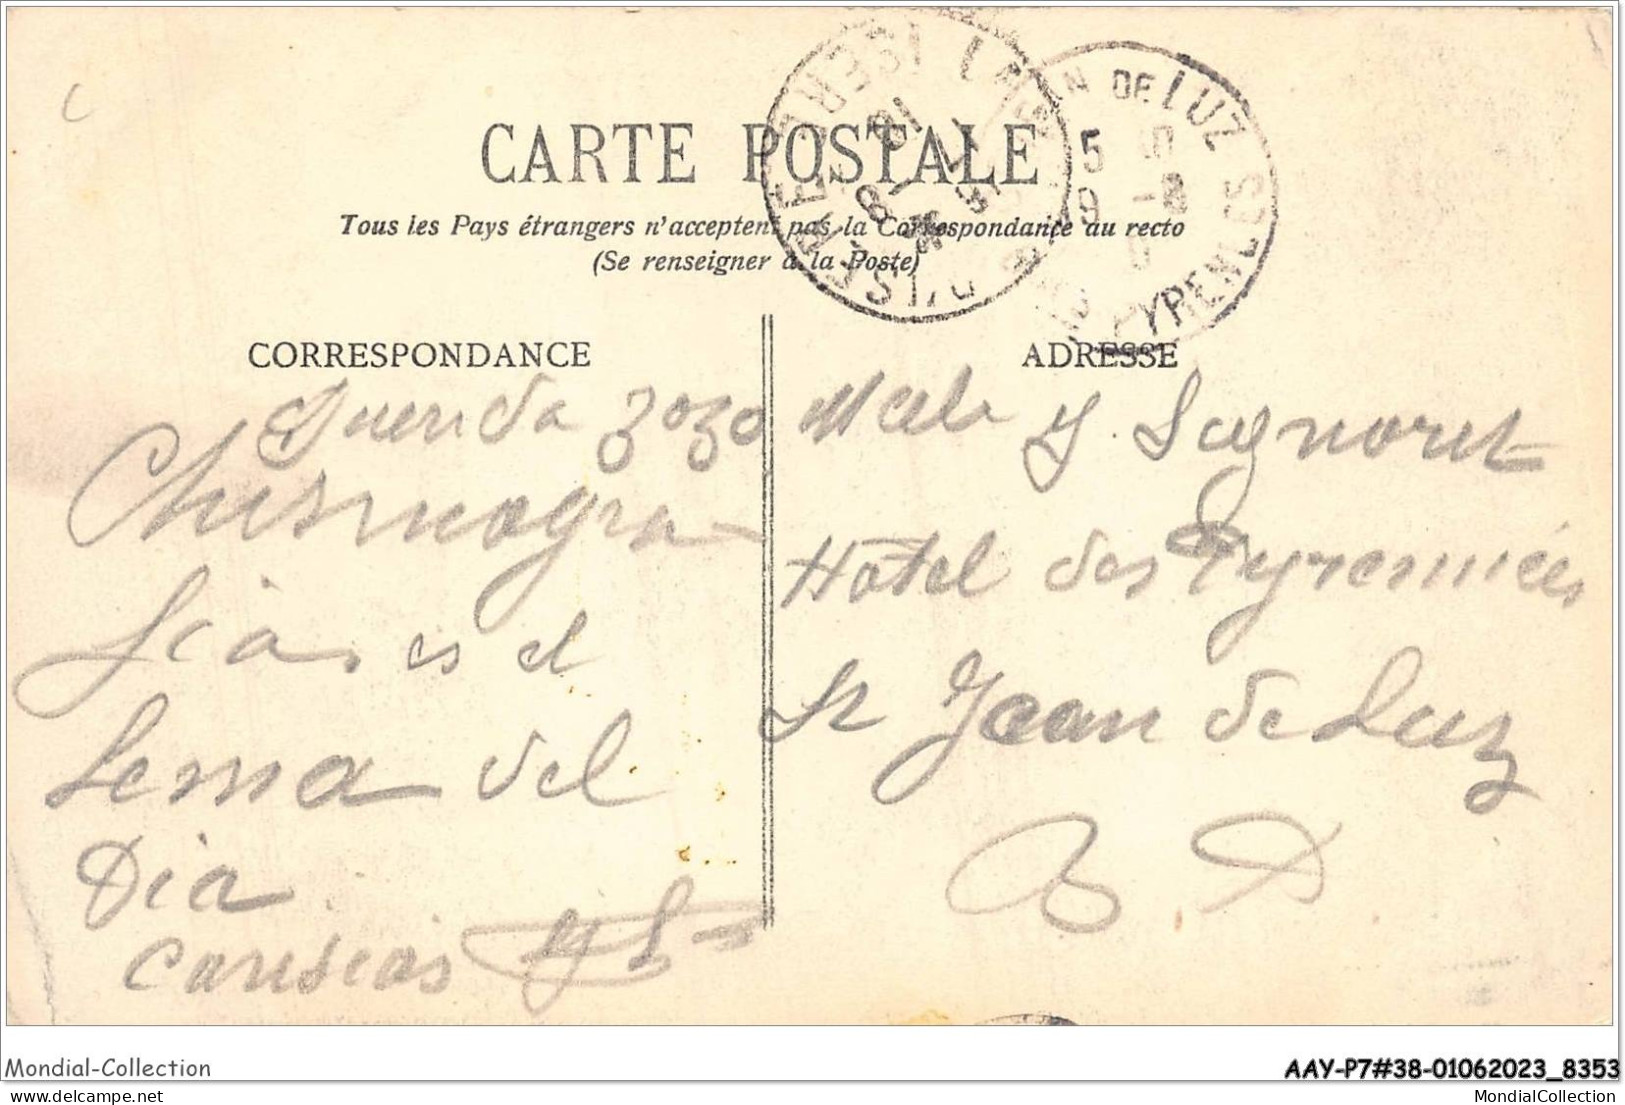 CARTE POSTALE
Tous les Pays étrangers n'acceptent pas la Correspondance au recto
(Se renseigner à la Poste)
CORRESPONDANCE
Querida zozo
Chismogra
fias es el
Lema del
Dia
caricias
ADRESSE
Y. Signoret
Hotel des Pyrennées
St Jean de Luz
B P
DE LUZ
Mondial-Collection
AAY-P7#38-01062023_8353
delcampe.net
MondialCollection